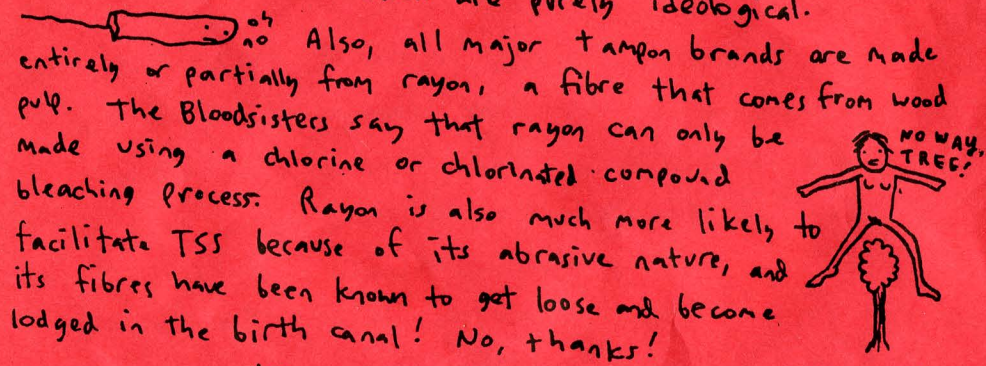 are purely ideological.
oh
no
Also, all major tampon brands are made
entirely or partially from rayon, a fibre that comes from wood
pulp. The Bloodsisters say that rayon can only be
made using a chlorine or chlorinated compound
bleaching process. Rayon is also much more likely to
facilitate TSS because of its abrasive nature, and
its fibres have been known to get loose and become
lodged in the birth canal! No, thanks!
NO WAY,
TREE!